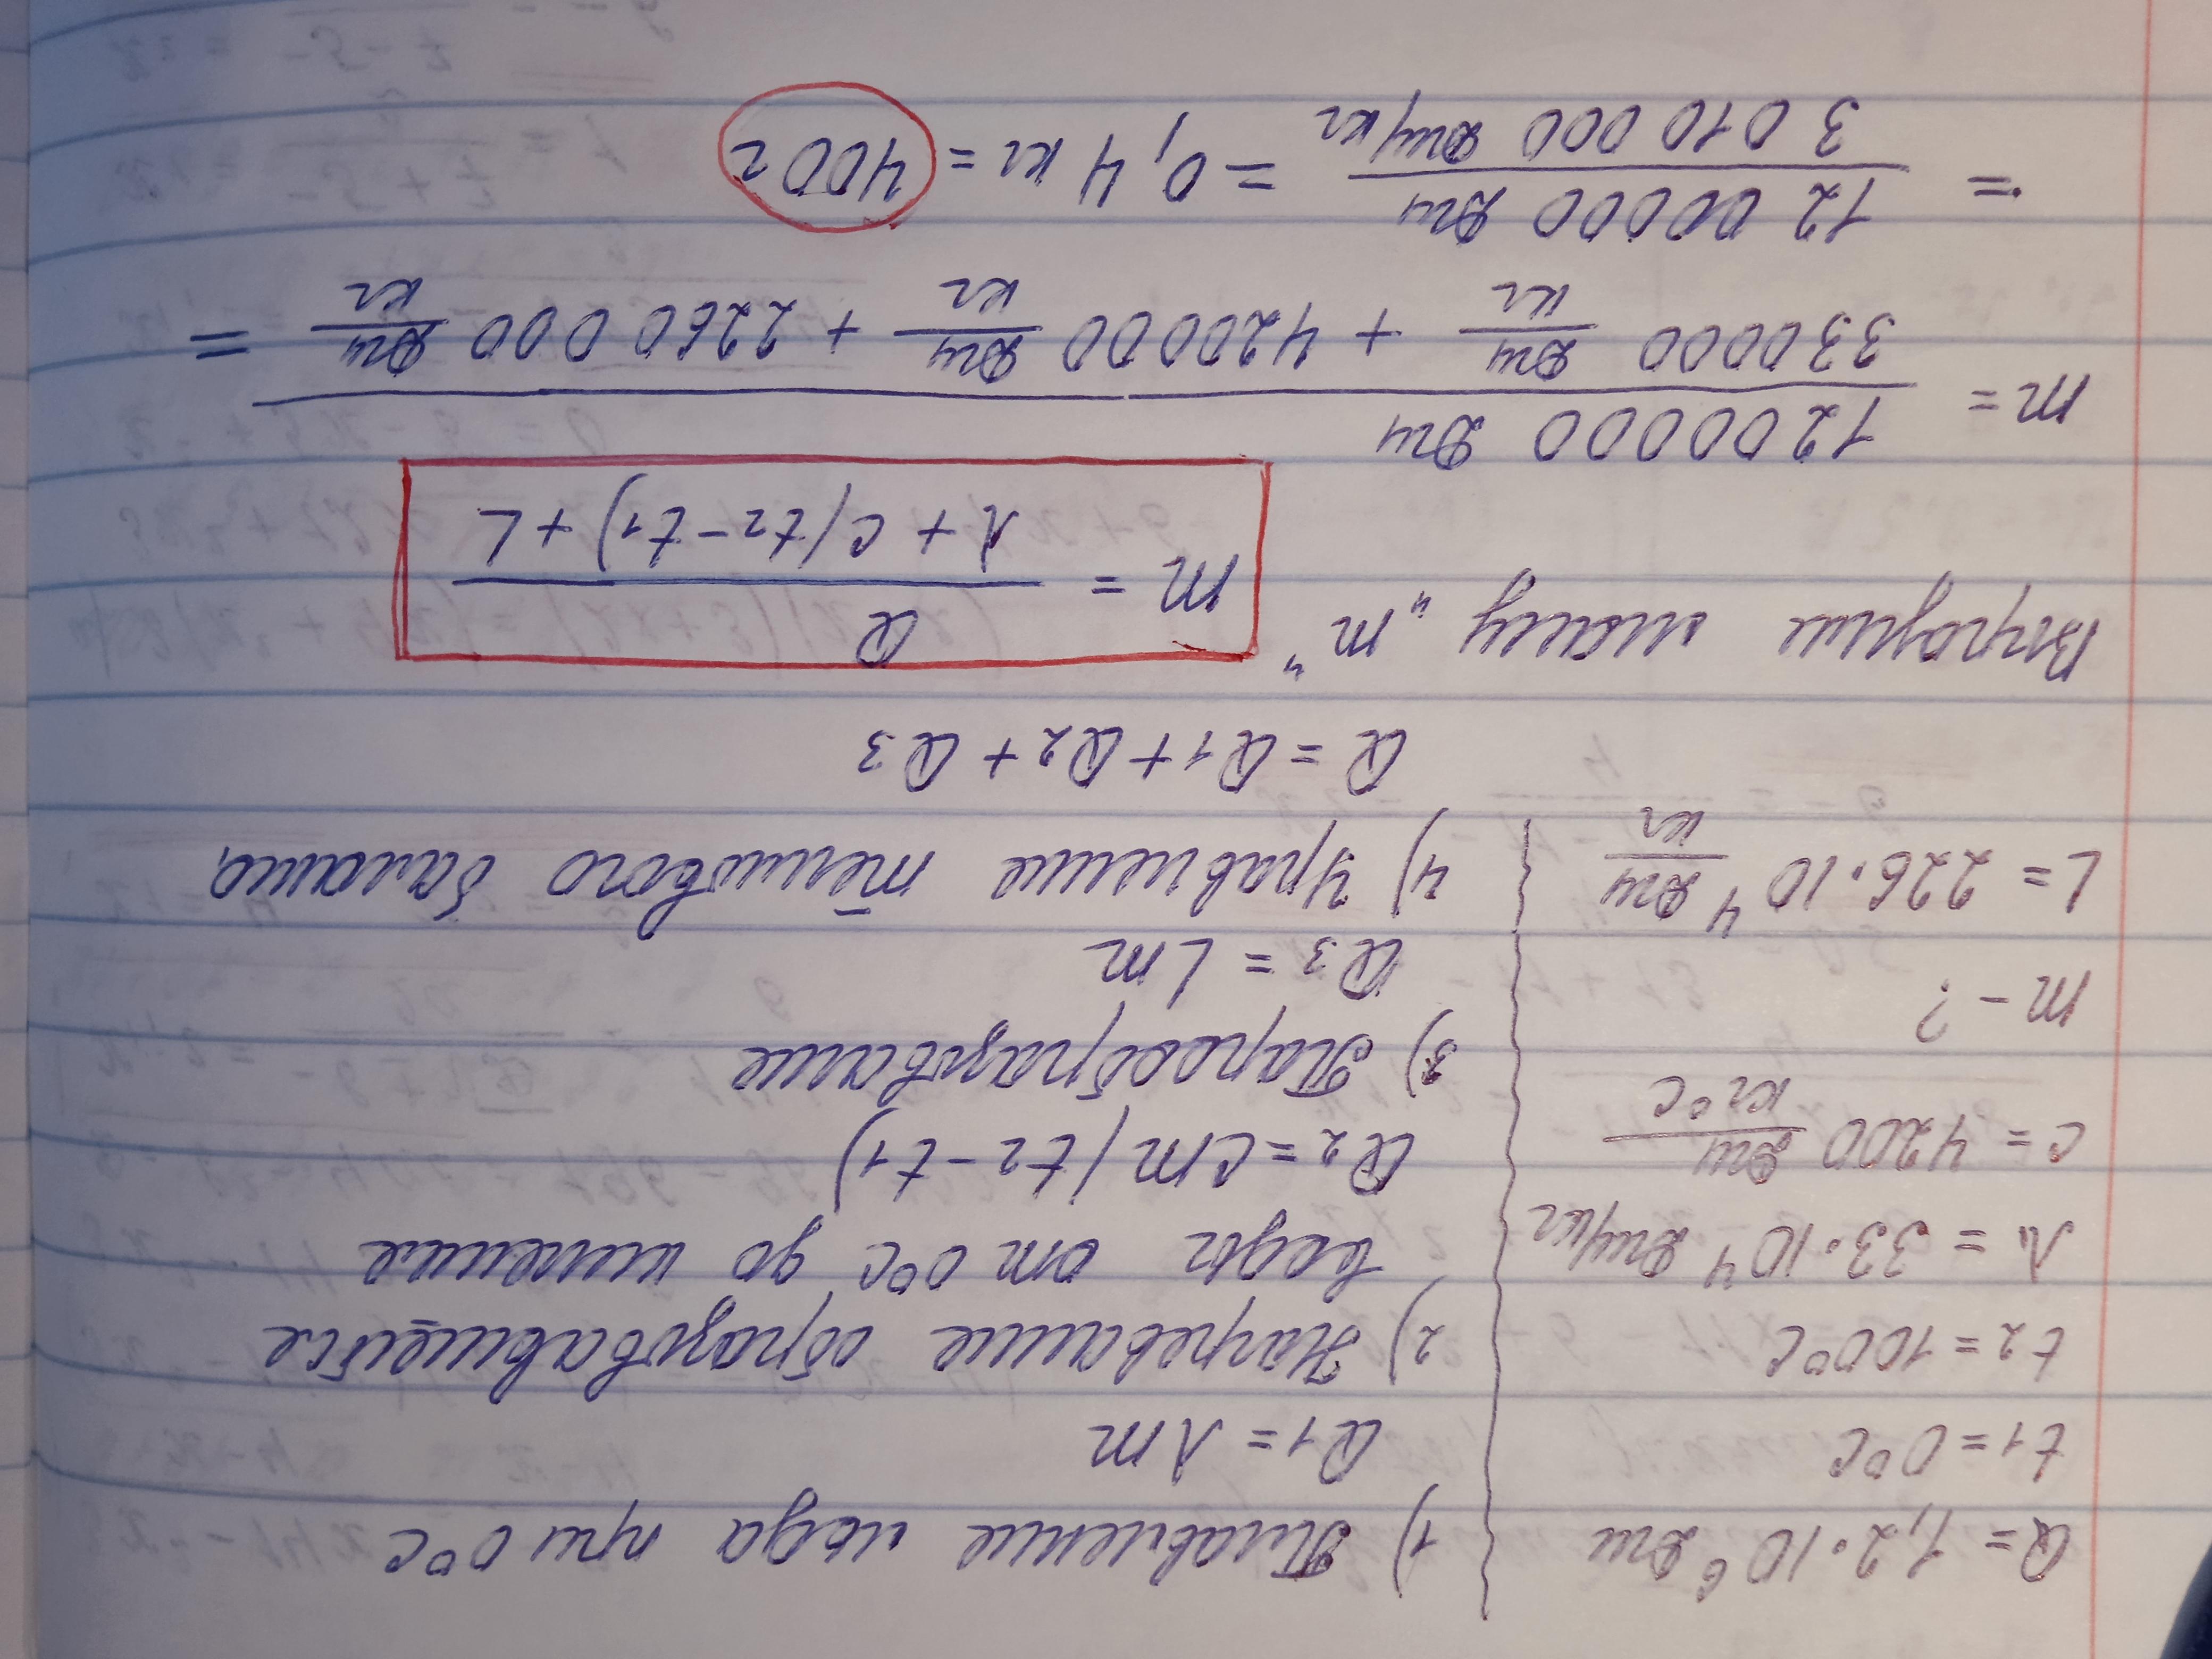 Q = 1,2·10⁶ Дж
t₁ = 0°C
t₂ = 100°C
λ = 33·10⁴ Дж/кг
c = 4200 Дж/кг°C
m - ?
L = 226·10⁴ Дж/кг
1) Плавление льда при 0°C
Q₁ = λm
2) Нагревание образовавшейся
воды от 0°C до кипения
Q₂ = cm(t₂ - t₁)
3) Парообразование
Q₃ = Lm
4) Уравнение теплового баланса.
Q = Q₁ + Q₂ + Q₃
Выразим массу "m"
m = Q / λ + c(t₂ - t₁) + L
m = 1200000 Дж / 330000 Дж/кг + 420000 Дж/кг + 2260 000 Дж/кг =
= 12 00000 Дж / 3 010 000 Дж/кг = 0,4 кг = 400 г